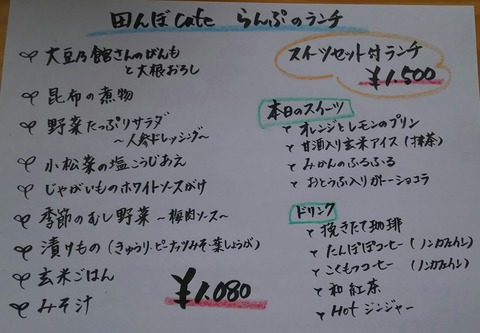 田んぼcafe らんぷのランチ
大豆乃館さんのがんも
と大根おろし
昆布の煮物
野菜たっぷりサラダ
~人参ドレッシング~
小松菜の塩こうじあえ
じゃがいものホワイトソースがけ
季節のむし野菜 ~梅肉ソース~
漬けもの (きゅうり・ピーナッツみそ・葉しょうが)
玄米ごはん
みそ汁
¥1.080
スイーツセット付ランチ
¥1.500
本日のスイーツ
オレンジとレモンのプリン
甘酒入り玄米アイス (抹茶)
みかんのふるふる
おとうふ入りガトーショコラ
ドリンク
挽きたて珈琲
たんぽぽコーヒー (ノンカフェイン)
こくもつコーヒー (ノンカフェイン)
和紅茶
Hot ジンジャー